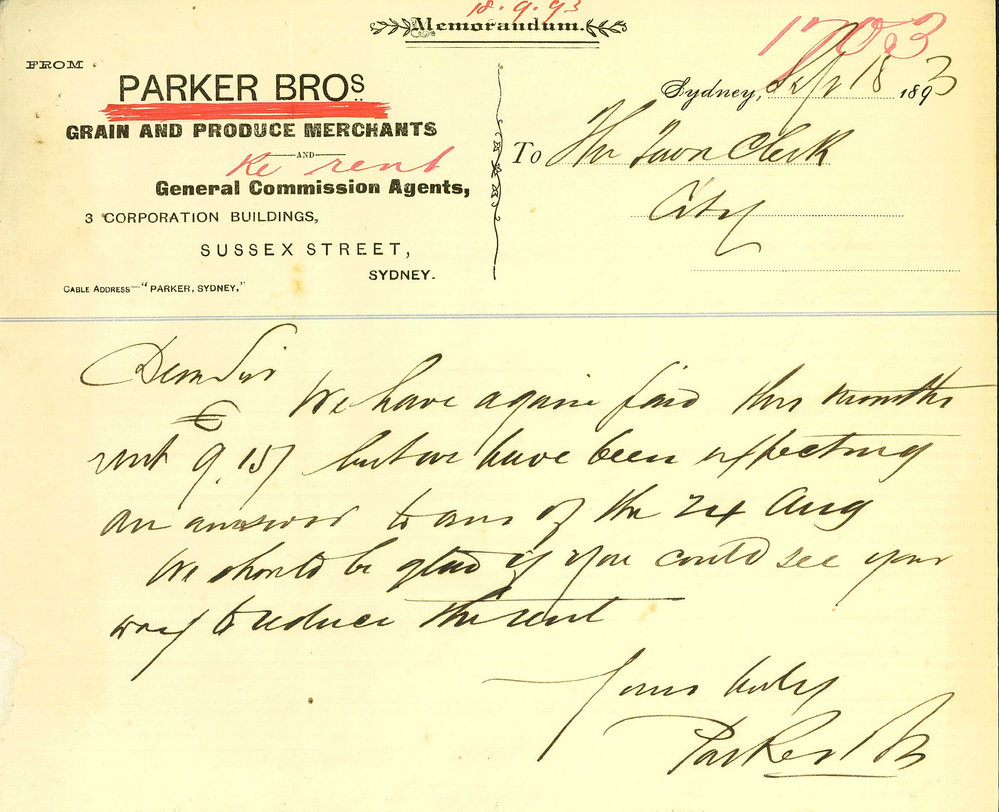 18.9.93
Memorandum.
1703
FROM
PARKER BROS
GRAIN AND PRODUCE MERCHANTS
AND
Re rent
General Commission Agents,
3 CORPORATION BUILDINGS,
SUSSEX STREET,
SYDNEY.
CABLE ADDRESS—"PARKER, SYDNEY."
Sydney, Sept 18 1893
To The Town Clerk
City
Dear Sir
We have again paid this months
rent £9.15/ but we have been expecting
an answer to ours of the 24 Aug
We should be glad if you could see your
way to reduce the rent
Yours truly
Parker Bros